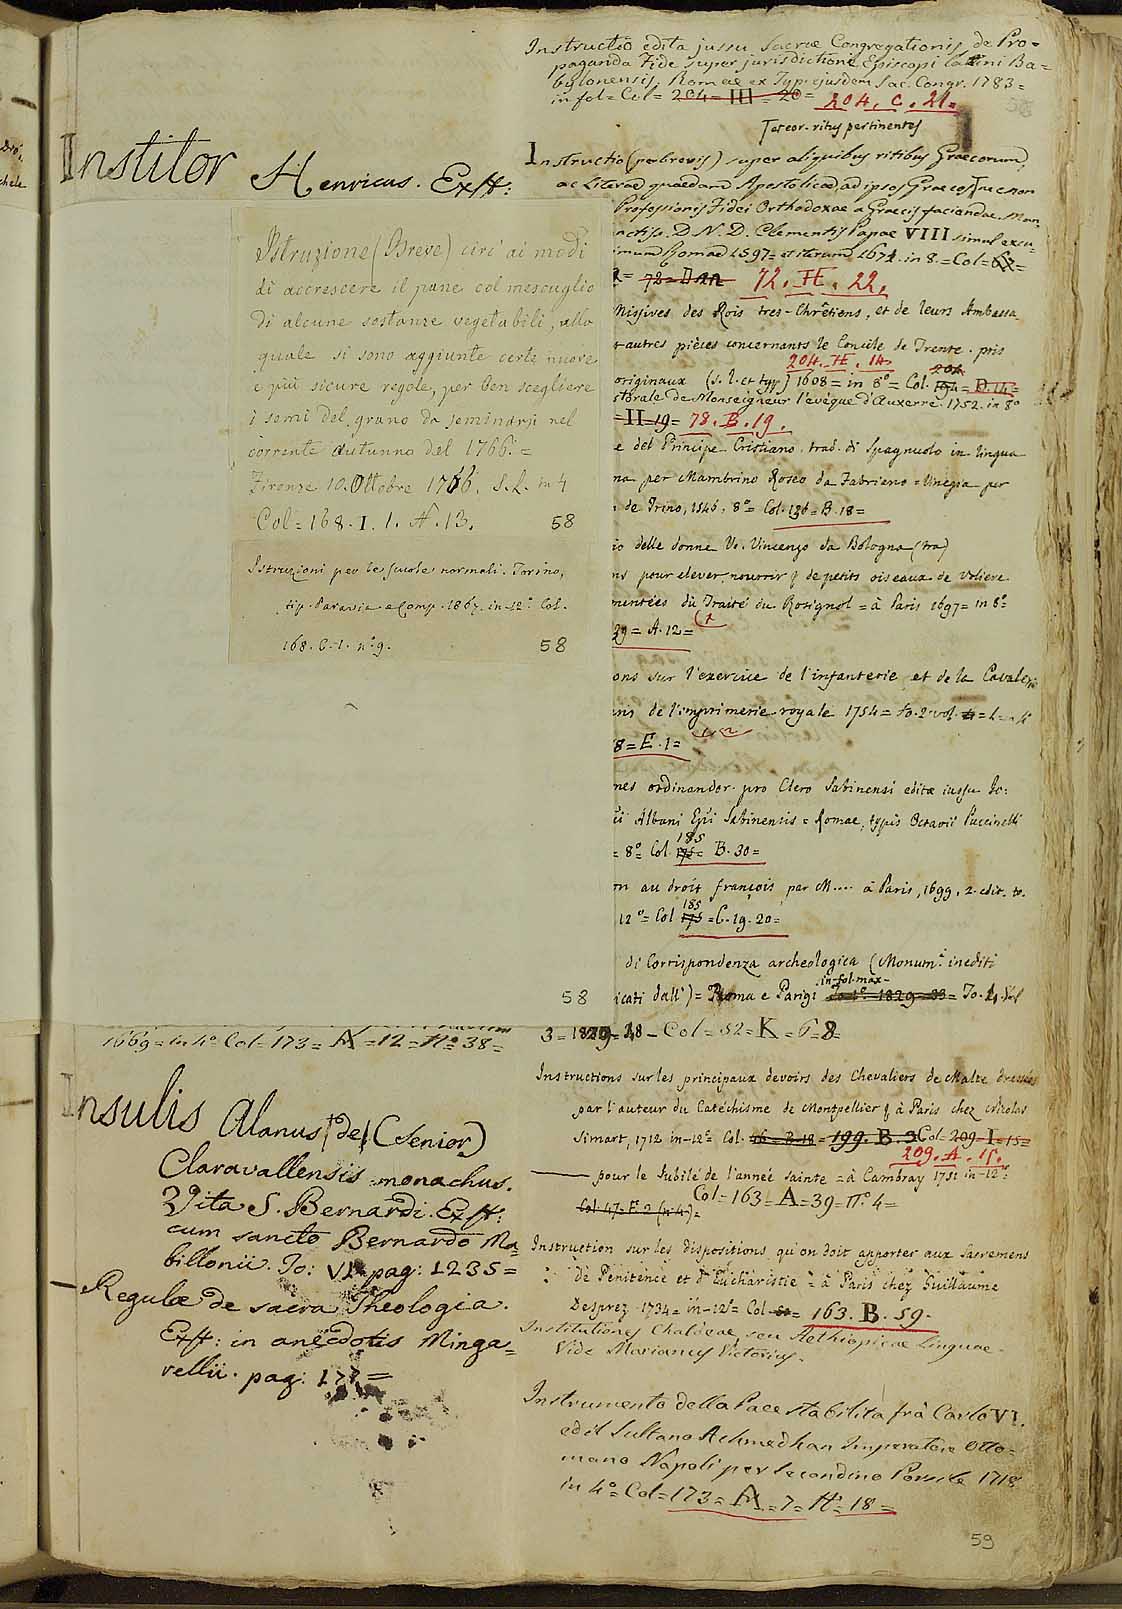 Institor Henricus. Exst:
Istruzione (Breve) circ' ai modi
di accrescere il pane col mescuglio
di alcune sostanze vegetabili, alla
quale si sono aggiunte certe nuove
e più sicure regole, per ben scegliere
i semi del grano da seminarsi nel
corrente Autunno del 1766. =
Firenze 10. Ottobre 1766. S.L. in 4
Col = 168. I. 1. N. 13. 58
Istruzioni per le scuole normali. Torino,
tip. Paravia e Comp. 1867. in-12º Col.
168. C. 1. nº 9. 58
58
1669 = in 4º Col = 173 = A = 12 = Nº 38 =
Insulis Alanus (de) (Senior)
Claravallensis monachus.
Vita S. Bernardi. Exst:
cum sancto Bernardo Ma=
billonii. To: VI. pag: 1235 =
— Regulae de sacra Theologia.
Exst: in anecdotis Minga=
rellii. pag: 177 =
Instructio edita jussu Sacrae Congregationis de Pro=
paganda Fide super jurisdictione Episcopi latini Ba=
bylonensis. Romae ex Typ: ejusdem Sac. Congr. 1783 =
in fol = Col = 204 = III = 20 = 204. C. 21.
ad eor. ritus pertinentes
Instructio (perbrevis) super aliquibus ritibus Graecorum,
ac Literae quaedam Apostolicae, ad ipsos Graecos, nec non
Professionis Fidei Orthodoxae a Graecis faciendae. Man
D. N. D. Clementis Papae VIII simul excu=
Romae 1597 = et iterum 1671. in 8. = Col = 62 =
72. H. 22.
Missives des Rois tres-Chrêtiens, et de leurs Ambassa
autres pièces concernants le Concile de Trente. pris
204. H. 14
originaux (s. l. et typ) 1608 = in 8º = Col. 204
de Monseigneur l'evêque d'Auxerre. 1752. in 8º
= II = 19 = 78. B. 19.
e del Principe Cristiano. trad. di Spagnuolo in lingua
na per Mambrino Roseo da Fabriano = Vinegia per
de Trino, 1546. 8º = Col. 136 = B. 18 =
delle donne V. Vincenzo da Bologna (fra)
pour elever, nourrir & de petits oiseaux de Voliere
mentées du Traité du Rosignol = à Paris 1697 = in 8º
39 = A. 12 =
ons sur l'exercice de l'infanterie, et de la Cavalerie
de l'imprimerie royale 1754 = to. 2 vol.
8 = E. 1 =
nes ordinandor. pro Clero Sabinensi editae iussu Jo:
Albani Epi Sabinensis = Romae, typis Octavii Puccinelli
= 8º Col 185 = B. 30 =
on au droit françois par M.... à Paris, 1699. 2. edit. to.
12º = Col 185 = C. 19. 20 =
di Corrispondenza archeologica (Monumti inediti
in fol. max -
icati dall') = Roma e Parigi
3 = 1829 = 38 — Col = 52 = K = 6 = 8
Instructions sur les principaux devoirs des Chevaliers de Malte dressées
par l'auteur du Catéchisme de Montpellier & à Paris chez Nicolas
Simart, 1712 in-12º Col. 16 = B. 18 = 199. B. 3 Col = 209 = I = 15 =
209. A. 15.
— pour le Jubilé de l'année sainte = à Cambray 1751 in-12º =
Col. 47 = F. 2 (n. 4) = Col = 163 = A = 39 = nº 4 =
Instruction sur les dispositions qu'on doit apporter aux Sacremens
de Penitence et d'Eucharistie = à Paris chez Guillaume
Desprez 1734 = in-12º = Col = 163. B. 59.
Institutiones Chaldeae, seu Aethiopicae linguae.
Vide Marianus Victorius.
Instrumento della Pace stabilita frà Carlo VI.
ed il Sultano Achmedhan Imperatore Otto=
mano Napoli per Secondino Porsile 1718
in 4º = Col = 173 = A = 7 = Nº 18 =
59